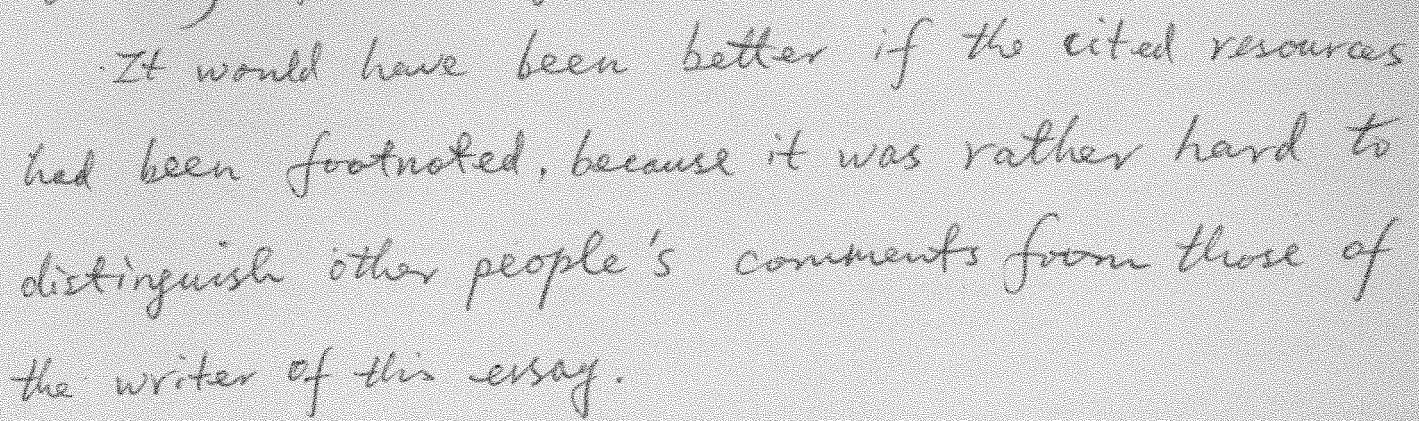 It would have been better if the cited resources
had been footnoted, because it was rather hard to
distinguish other people's comments from those of
the writer of this essay.